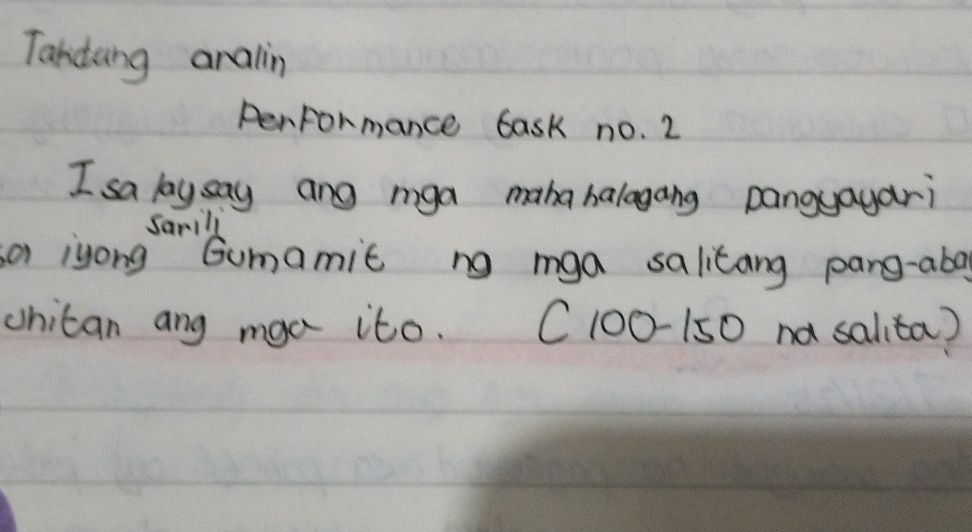 Takdang aralin
Performance task no. 2
Isalaysay ang mga mahahalagang pangyayari
sa iyong sarili Gumamit ng mga salitang pang-aba
unitan ang mga ito. (100-150 na salita)